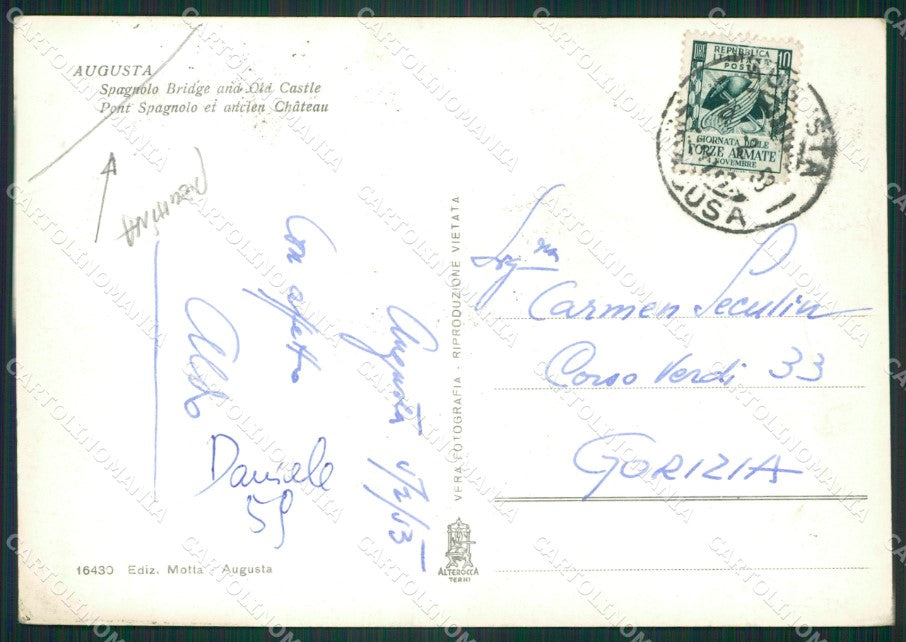 AUGUSTA
Spagnolo Bridge and Old Castle
Pont Spagnolo et ancien Château
Con affetto
Aldo
Augusta
Daniele
59
16430 Ediz. Motta - Augusta
VERA FOTOGRAFIA - RIPRODUZIONE VIETATA
ALTEROCCA
TERNI
10
REPUBBLICA
ITALIANA
POSTE
GIORNATA DELLE
FORZE ARMATE
NOVEMBRE
Sig.na
Carmen Seculin
Corso Verdi 33
GORIZIA
CARTOLINOMANIA